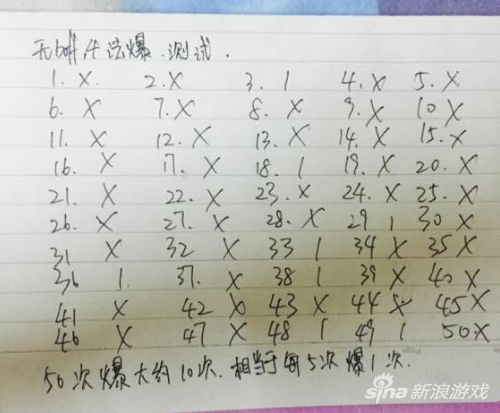 无buff 法爆.测试.
1. X. 2. X 3. 1 4. X 5. X
6. X 7. X 8. X 9. X 10 X
11. X 12. X 13. X 14. X 15. X
16. X 17. X 18. 1 19. X 20. X
21. X 22. X 23. X 24. X 25. X
26. X 27. X 28. X 29 1 30 X
31 X 32 X 33 1 34 X 35 X
36 1. 37. X 38 1 39 X 40 X
41 X 42 X 43 X 44 X 45 X
46 X 47 X 48 1 49 1 50 X
50次爆大约10次.相当于每5次爆1次.
sina新浪游戏